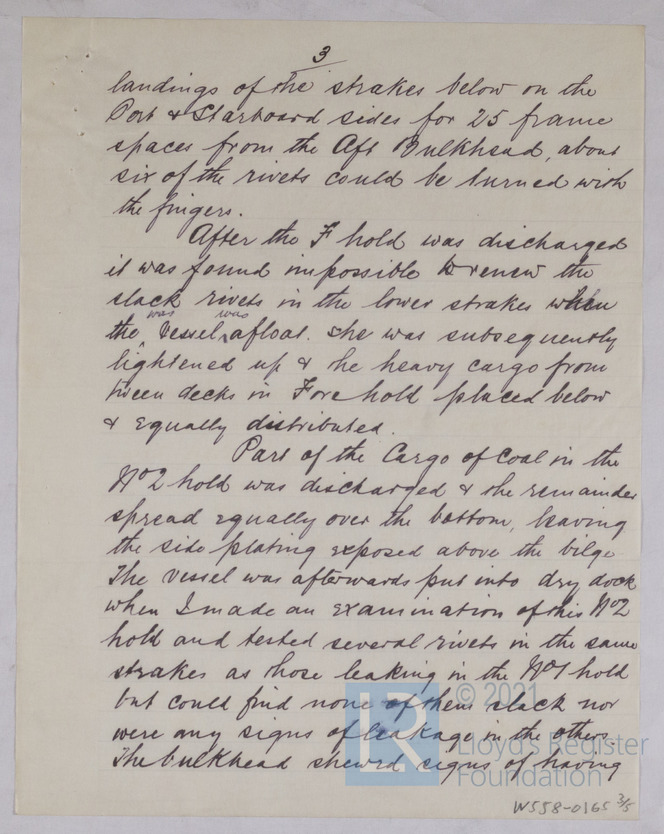 3
landings of the strakes below on the
Port & Starboard sides for 25 frame
spaces from the Aft Bulkhead, about
six of the rivets could be turned with
the fingers.
After the F hold was discharged
it was found impossible to renew the
slack rivets in the lower strakes when
was was
the vessel afloat. She was subsequently
lightened up & the heavy cargo from
tween decks in Fore hold placed below
& equally distributed.
Part of the Cargo of Coal in the
No2 hold was discharged & the remainder
spread equally over the bottom, leaving
the side plating exposed above the bilge
The vessel was afterwards put into dry dock
when I made an examination of this No2
hold and tested several rivets in the same
strakes as those leaking in the No1 hold
but could find none of them slack nor
were any signs of leakage in the others
The bulkhead shewed signs of having
LR © 2021
Lloyd's Register
Foundation
W558-0165 3/5